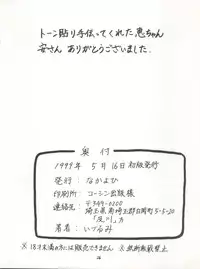 トーン貼り手伝ってくれた恵ちゃん
安さん ありがとうございました.
奥付
1999年 5月16日 初版発行
発行: なかよひ
印刷所: コーシン出版 様
連絡先: 〒349-0200
埼玉県南埼玉郡白岡町5-5-20
方
著者: いづるみ
※18才未満の方には販売できません ※無断転載禁止